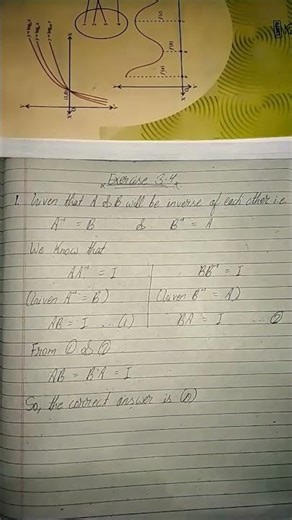 Exercise 3.4
1. Given that A & B will be inverse of each other i.e
A⁻¹ = B & B⁻¹ = A
We Know that
AA⁻¹ = I BB⁻¹ = I
(Given A⁻¹ = B) (Given B⁻¹ = A)
AB = I ... (1) BA = I ... (2)
From (1) & (2)
AB = BA = I
So, the correct answer is (D)